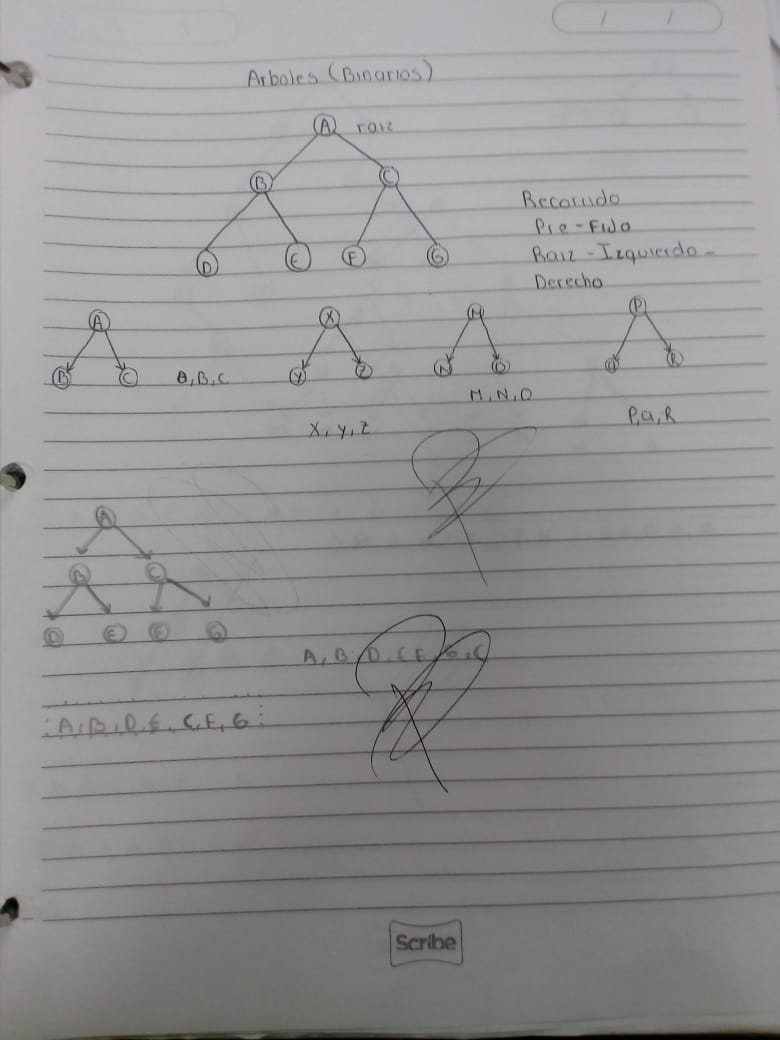 Arboles (Binarios)
A raiz
B C
D E F G
Recorrido
Pre-Fijo
Raiz - Izquierdo -
Derecho
A
B C
A, B, C
X
Y Z
X, Y, Z
M
N O
M, N, O
P
Q R
P, Q, R
A
B C
D E F G
A, B, D, C
A, B, D, E, C, F, G
Scribe